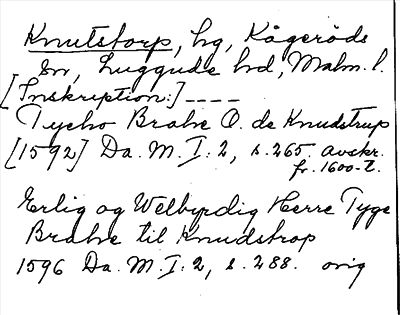 Knutstorp, hg, Kågeröds
sn, Luggude hd, Malm. l.
[Inskription:] ----
Tycho Brahe O. de Knudstrup
[1592] Da. M. I: 2, s. 265. avskr.
fr. 1600-t.
Erlig og Welbyrdig Herre Tyge
Brahe til Knudstrop
1596 Da. M. I: 2, s. 288. orig